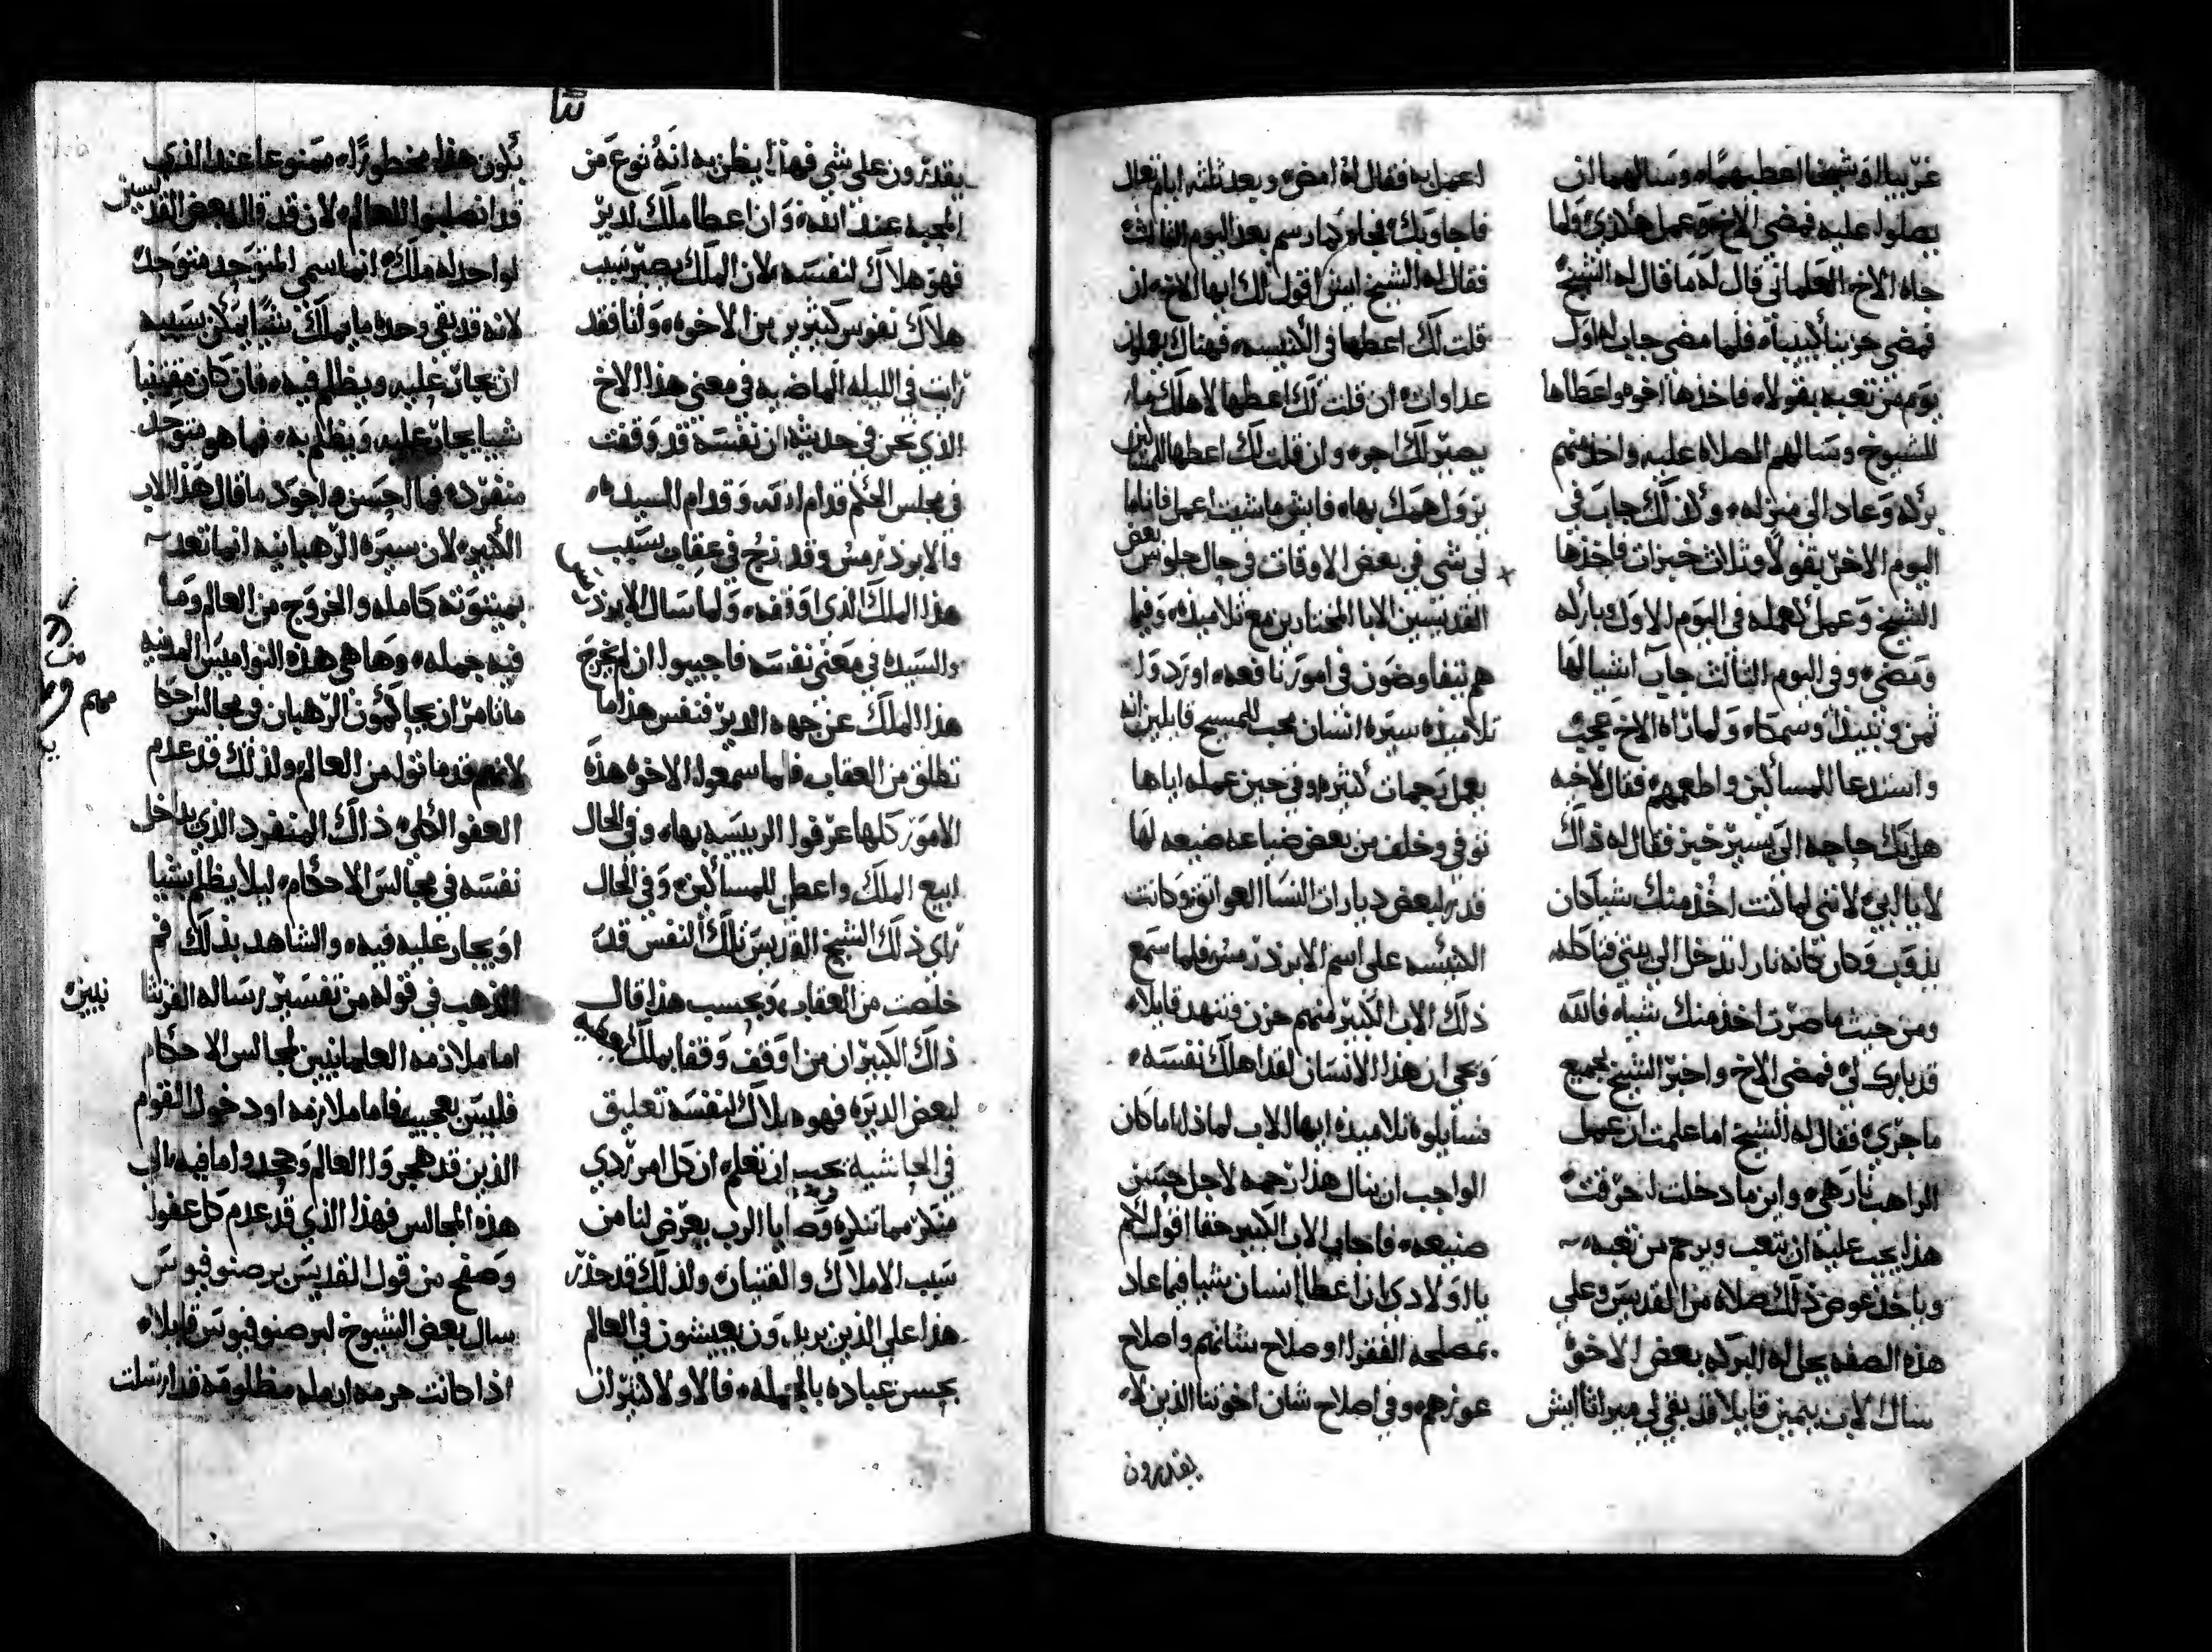 غريبا او شيخا اعطيهماه وسالهما ان
يصلوا عليه فمضي الاخ وعمل هكذي ولما
جاه الاخ العلماني قال له ما قال له الشيخ
فمضي حزينا كييبا فلما مضي جاب له اول
يوم من تعبه بقولا فاخذها اخوه واعطاها
للشيوخ وسالهم الصلاه عليه واخذ منهم
بركه وعاد الي منزله وكذلك جاب في
اليوم الاخر بقولا وثلاث خبزات فاخذها
الشيخ وعمل كعمله في اليوم الاول وباركه
ومضي وفي اليوم الثالث جاب اشيا لها
ثمن ونبيذا وسمكا ولما راه الاخ عجب
واستدعا للمساكين واطعمهم فقال لاخيه
هل بك حاجه الي يسير خبز فقال له ذاك
لا يا ابي لانني لما كنت اخذ منك شيا كان
يذوب وكان كانه نارا تدخل الي بيتي فتاكله
ومن حيث ما صرت اخذ منك شيا فالله
قد بارك لي فمضي الاخ واخبر الشيخ بجميع
ما جري فقال له الشيخ اما علمت ان عمل
الراهب نار هي واين ما دخلت احرقت
هذا يجب عليه ان يتعب ويرحم من تعبه
وياخذ عوض ذلك صلاه من القديس وعلي
هذه الصفه يحل له البركه بعض الاخوه
سال لاب بيمين قايلا قد بقي لي ميراثا ايش
اعمل به فقال له امض وبعد ثلثه ايام تعال
فاجاوبك فجاه كما رسم بعد اليوم الثالث
فقال له الشيخ ايش اقول لك ايها الاخ ان
قلت لك اعطها في الكنيسه فهناك يعملون
عداوات ان قلت لك اعطها لاهلك ما
يصير لك اجر وان قلت لك اعطها للمساكين
تزول همك بها فايش ما شيت اعمل فانا ما
لي شي في بعض الاوقات في حال جلوس بعض
القديسين الابا المختارين مع تلاميذه وفيما
هم يتفاوضون في امور نافعه اورد وله
تلاميذه سيره انسان محب للمسيح قايلين انه
يعمل رحمات كثيره وفي حين عمله اياها
توفي وخلف من بعض ضياعه ضيعه لها
قدر لبعض ديارات النسا العواتق وكانت
الكنيسه علي اسم الابوذرمس فلما سمع
ذلك الاب الكبير منهم حزن فتنهد قايلا
ويحي ان هذا الانسان لقد اهلك نفسه
فسايلوه تلاميذه ايها الاب لماذا اما كان
الواجب ان ينال هذا رحمه لاجل حسن
صنيعه فاجاب الاب الكبير حقا اقول لكم
يا اولادي اذا اعطا انسان شيا فيما عاد
بمصلحه الفقرا او صلاح شانهم واصلاح
عوزهم وفي اصلاح شان اخوتنا الذين لا
يقدرون
يقدرون علي شي فهذا يظن به انه نوع من
المحبه عند الله وان اعطا ملك لدير
فهو هلاك لنفسه لان الملك يصير سبب
هلاك نفوس كثيرين من الاخوه وانا فقد
رايت في الليله الماضيه في معني هذا الاخ
الذي نحن في حديثه ان نفسه قد وقفت
في مجلس الحكم قدام الله وقدام السيده
والابوذرمس وقد زج في عقاب بسبب
هذا الملك الذي اوقفه ولما سال الابوذرمس
والسيده في معني نفسه فاجيبوا ان لم يخرج
هذا الملك عن جهه الدير فنفس هذا ما
تطلق من العقاب فلما سمعوا الاخوه هذه
الامور كلها عرفوا الرييسه بها وفي الحال
ابيع الملك واعطي للمساكين وفي الحال
راي ذلك الشيخ القديس تلك النفس قد
خلصت من العقاب وبحسب هذا قال
ذاك الكبير ان من اوقف وقفا بملك وهبه
لبعض الديره فهو هلاك لنفسه تعليق
في الحاشيه يجب ان تعلم ان كل امر ردي
منكر مما تنكره وصايا الرب يعرض لنا من
سبب الاملاك والقنيان ولذلك قد حذر
هذا علي الذين يريدون يعيشون في العالم
بحسن عباده بالجمله فالاولا كثيرا ان
يكون هذا محظورا ممنوعا عند الذين
قد انصلبوا للعالم لان قد قال بعض القديسين
لواحد له ملك انما سمي المتوحد متوحد
لانه قد بقي وحده ما يملك شيا يمكن بسببه
ان يجار عليه ويظلم فيه فان كان مقتنيا
شيا يجار عليه ويظلم به فما هو متوحد
منفرد فما احسن واجود ما قال هذا الاب
الكبير لان سيره الرهبانيه انما تعد
بميتوته كامله والخروج من العالم وما
فيه جمله وها هي هذه النواميس المدنيه
ما تامر ان يحاكمون الرهبان في مجالس احكا
لانهم قد ماتوا من العالم ولذلك قد عدم
العفو الكلي ذاك المنفرد الذي يداخل
نفسه في مجالس الاحكام ليلا يظلم بشيا
او يجار عليه فيه والشاهد بذلك فم
الذهب في قوله من تفسير رساله القرنثا
نيين
اما ملازمه العلمانيين لمجالس الاحكام
فليس بعجيب فاما ملازمه او دخول القوم
الذين قد هجروا العالم وجحدوا ما فيه الي
هذه المجالس فهذا الذي قد عدم كل عفو
وصفح من قول القديس برصنوفيوس
سال بعض الشيوخ لبرصنوفيوس قايلا
اذا كانت حرمه ارمله مظلومه قد ارسلت